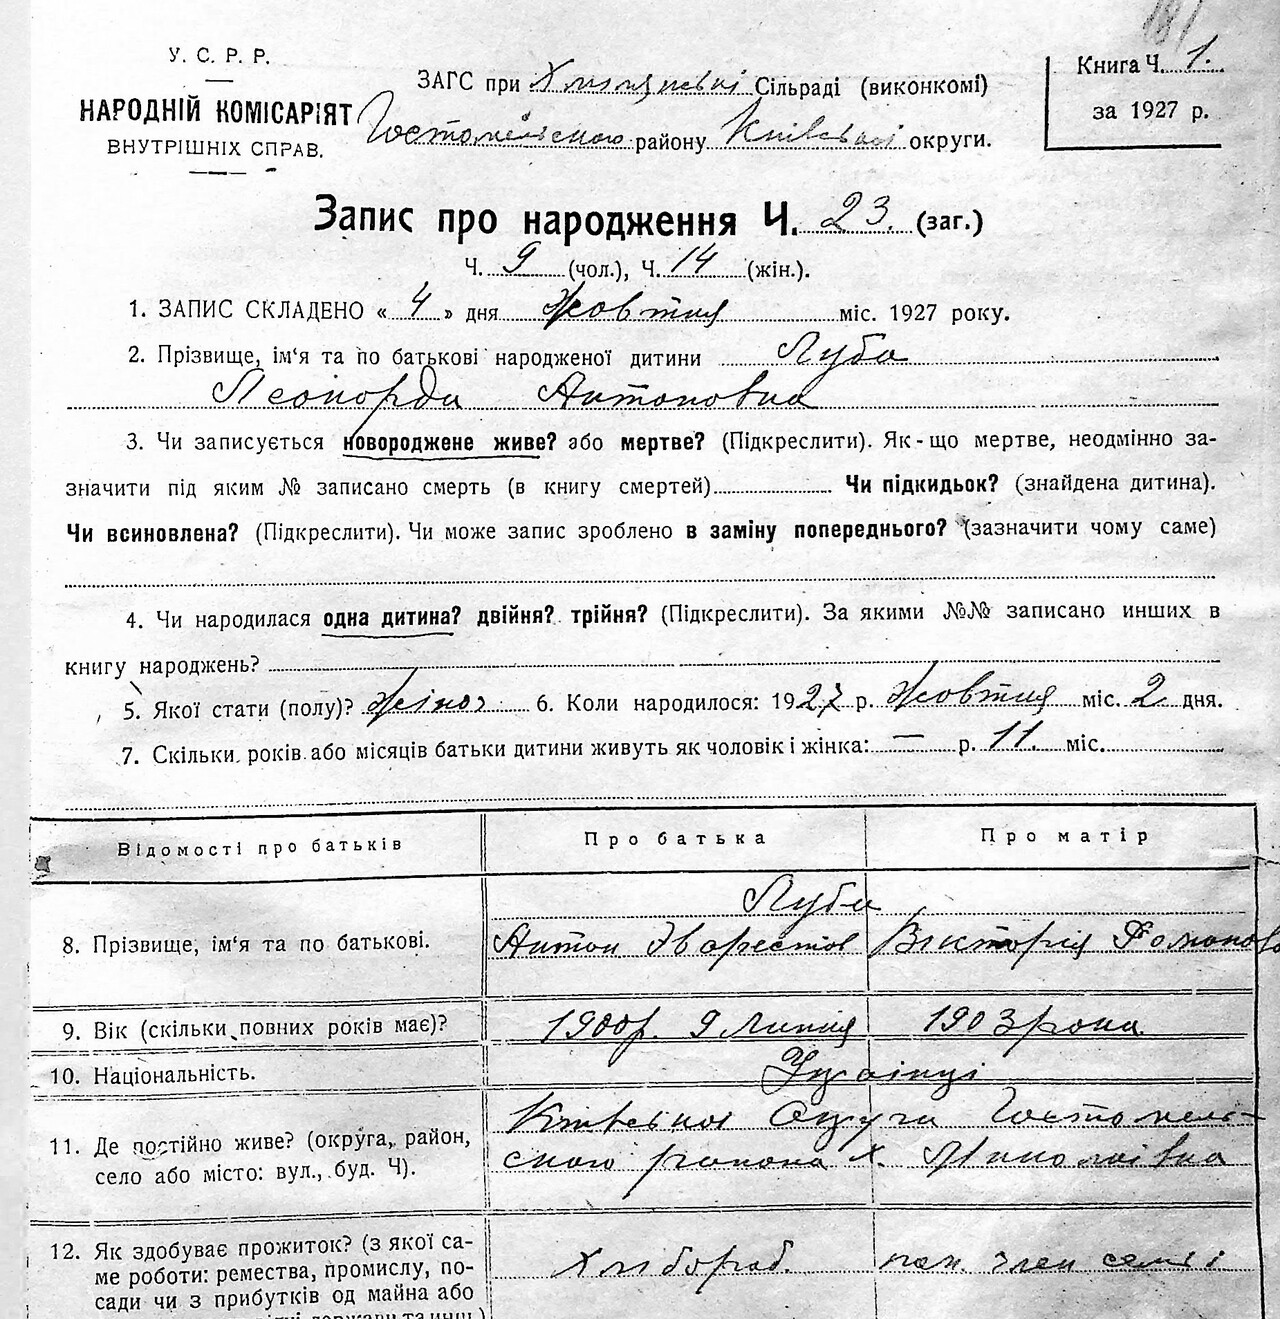 181
У. С. Р. Р.
НАРОДНІЙ КОМІСАРІЯТ
ВНУТРІШНІХ СПРАВ.
ЗАГС при Сільраді (виконкомі)
Гостомельского району Київської округи.
Книга Ч. 1.
за 1927 р.
Запис про народження Ч. 23. (заг.)
Ч. 9 (чол.), Ч. 14 (жін.).
1. ЗАПИС СКЛАДЕНО « 4 » дня Жовтня міс. 1927 року.
2. Прізвище, ім‘я та по батькові народженої дитини Луба
Леонорда Антоновна
3. Чи записується новороджене живе? або мертве? (Підкреслити). Як-що мертве, неодмінно за-
значити під яким № записано смерть (в книгу смертей) Чи підкидьок? (знайдена дитина).
Чи всиновлена? (Підкреслити). Чи може запис зроблено в заміну попереднього? (зазначити чому саме)
4. Чи народилася одна дитина? двійня? трійня? (Підкреслити). За якими №№ записано инших в
книгу народжень?
5. Якої стати (полу)? жіноч 6. Коли народилося: 1927 р. Жовтня міс. 2 дня.
7. Скільки років або місяців батьки дитини живуть як чоловік і жінка: — р. 11. міс.
Відомості про батьків Про батька Про матір
Луба
8. Прізвище, ім‘я та по батькові. Антон Эварестов Викторія Романова
9. Вік (скільки повних років має)? 1900р. 9 Липня 1903 рока
10. Національність. Українці
11. Де постійно живе? (округа, район, Київської Округа Гостомель-
село або місто: вул., буд. Ч). ского района х. Миколаівка
12. Як здобуває прожиток? (з якої са- Хлібороб. пом. член семьі
ме роботи: ремества, промислу, по-
сади чи з прибутків од майна або
держави та инш.)